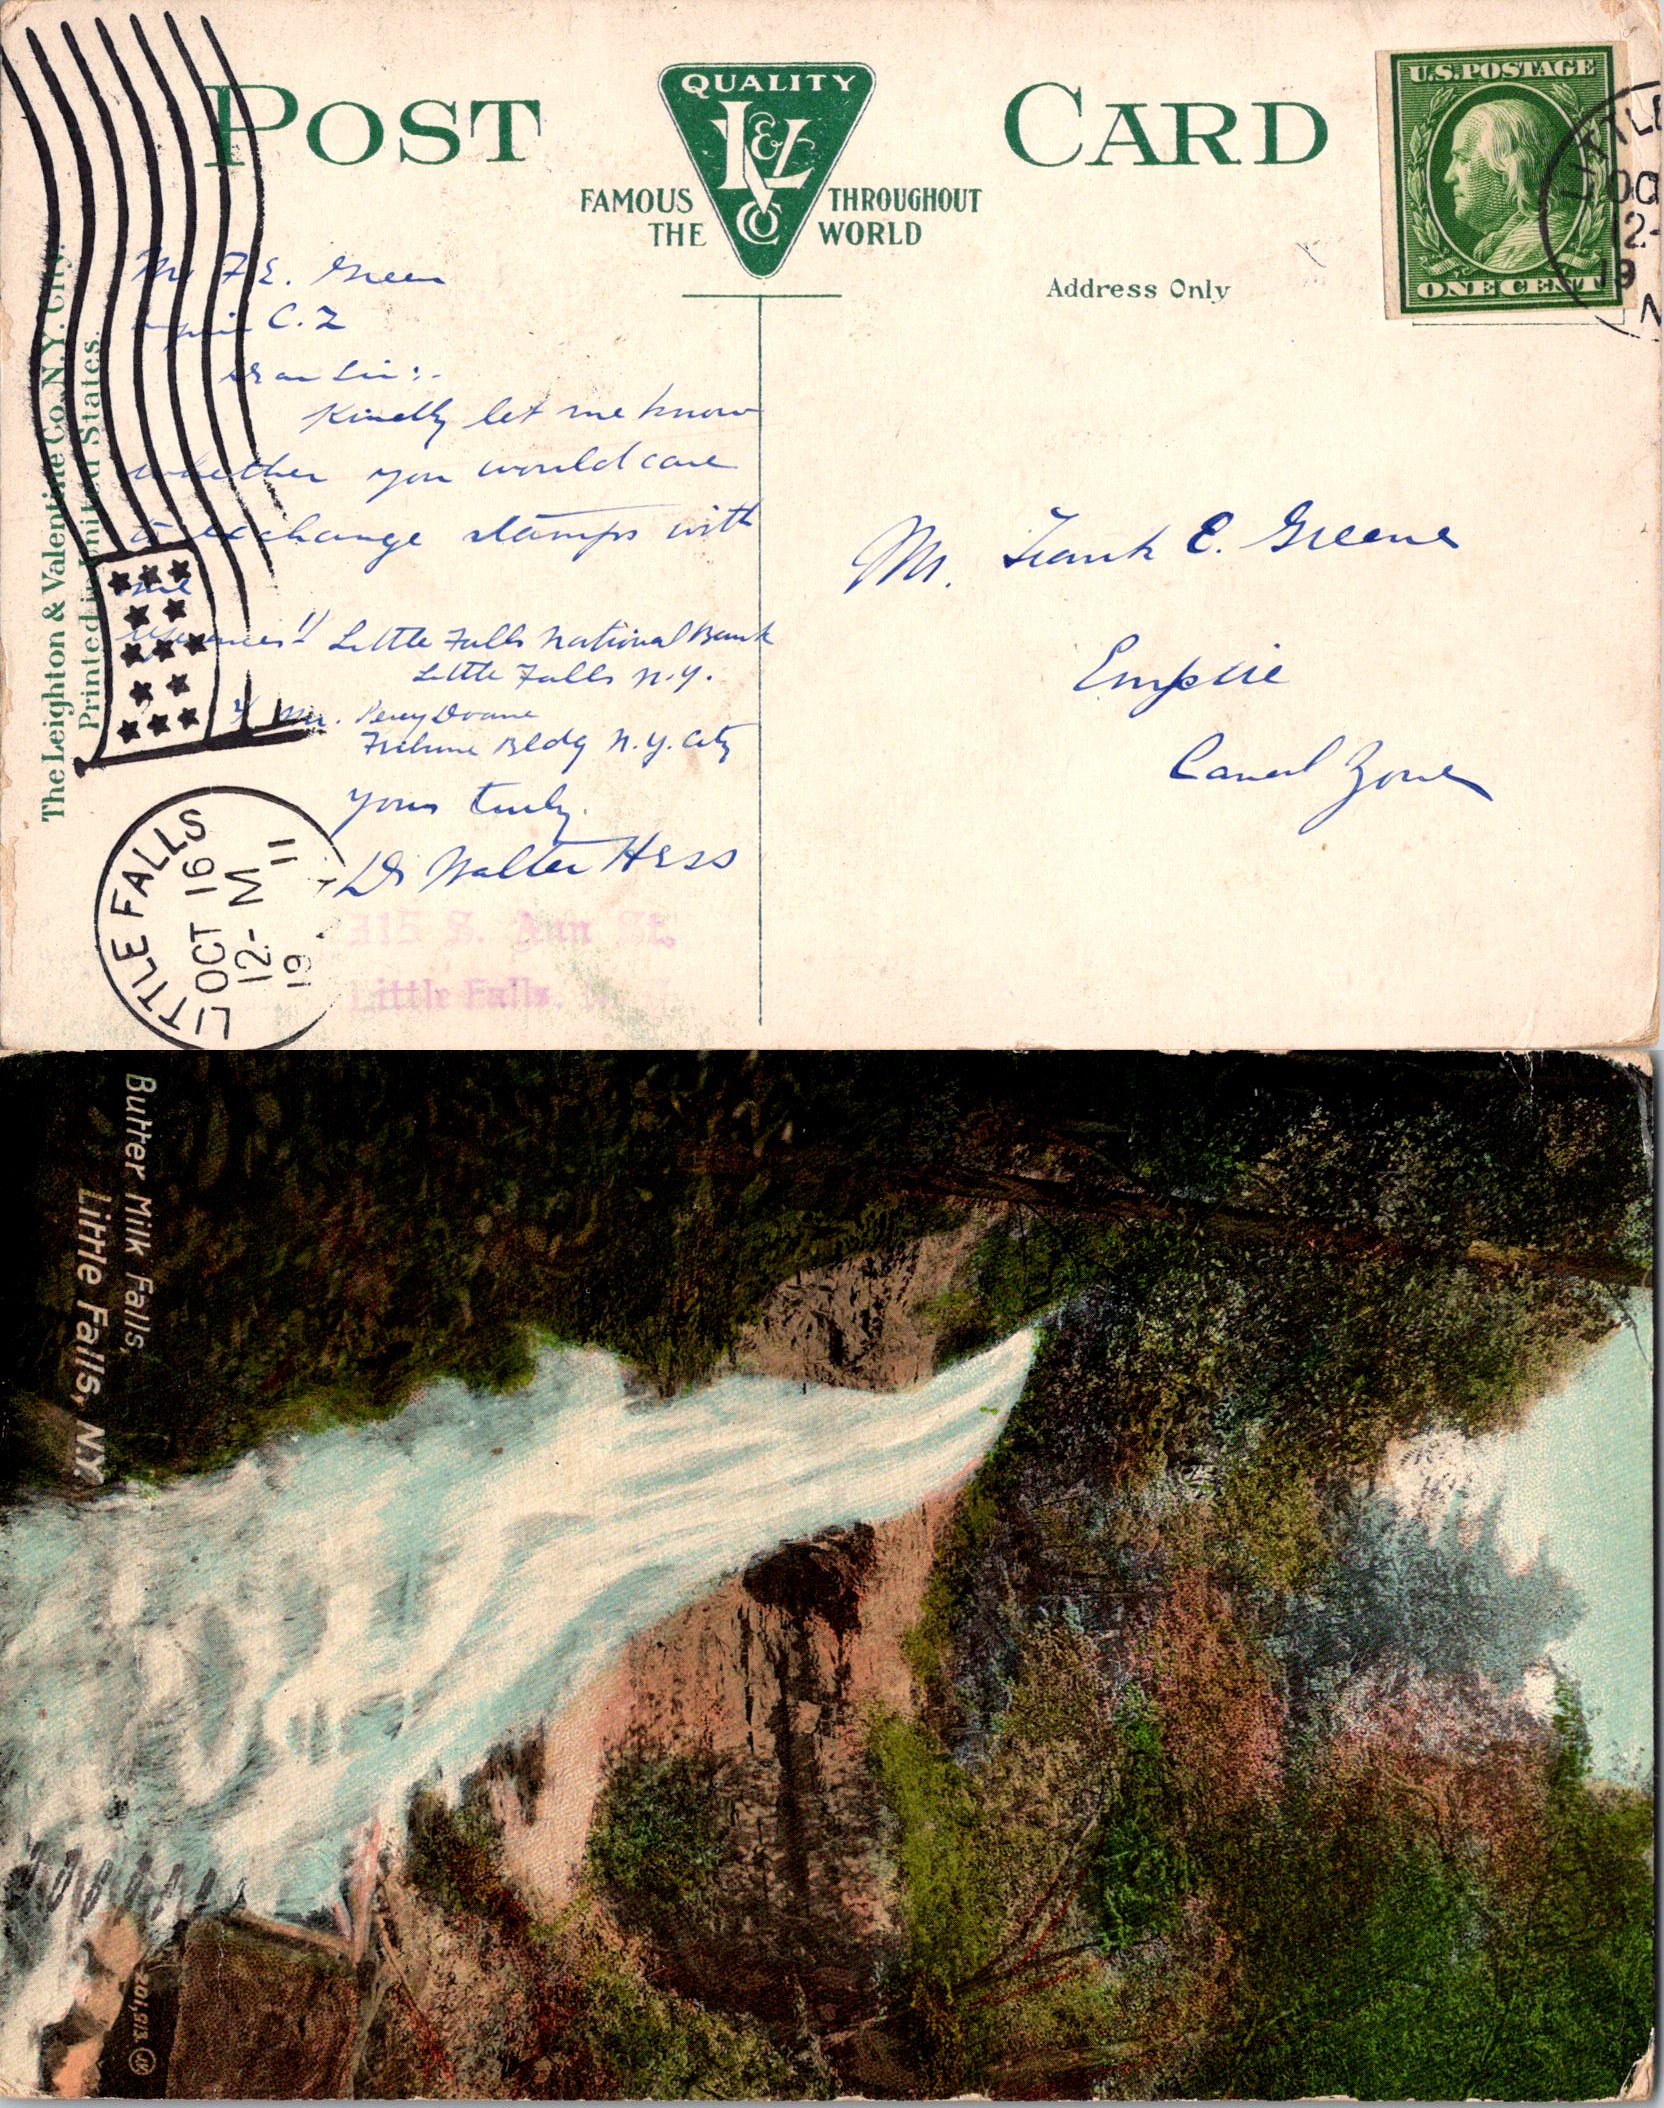 POST CARD
QUALITY
L&V
CO
FAMOUS THROUGHOUT
THE WORLD
U.S. POSTAGE
ONE CENT
LITTLE
12-
19
Address Only
The Leighton & Valentine Co., N.Y. City.
Printed in United States.
Mr F. E. Green
C.Z
Dear Sir:-
Kindly let me know
whether you would care
to exchange stamps with
me
References 1/ Little Falls National Bank
Little Falls N.Y.
2/ Mr. Percy Doane
Tribune Bldg N.Y. City
Yours truly.
Dr Walter Hess
315 S. Ann St.
Little Falls, N.Y.
LITTLE FALLS
OCT 16
12-M
1911
Mr. Frank E. Greene
Empire
Canal Zone
Butter Milk Falls,
Little Falls, N.Y.
201,913